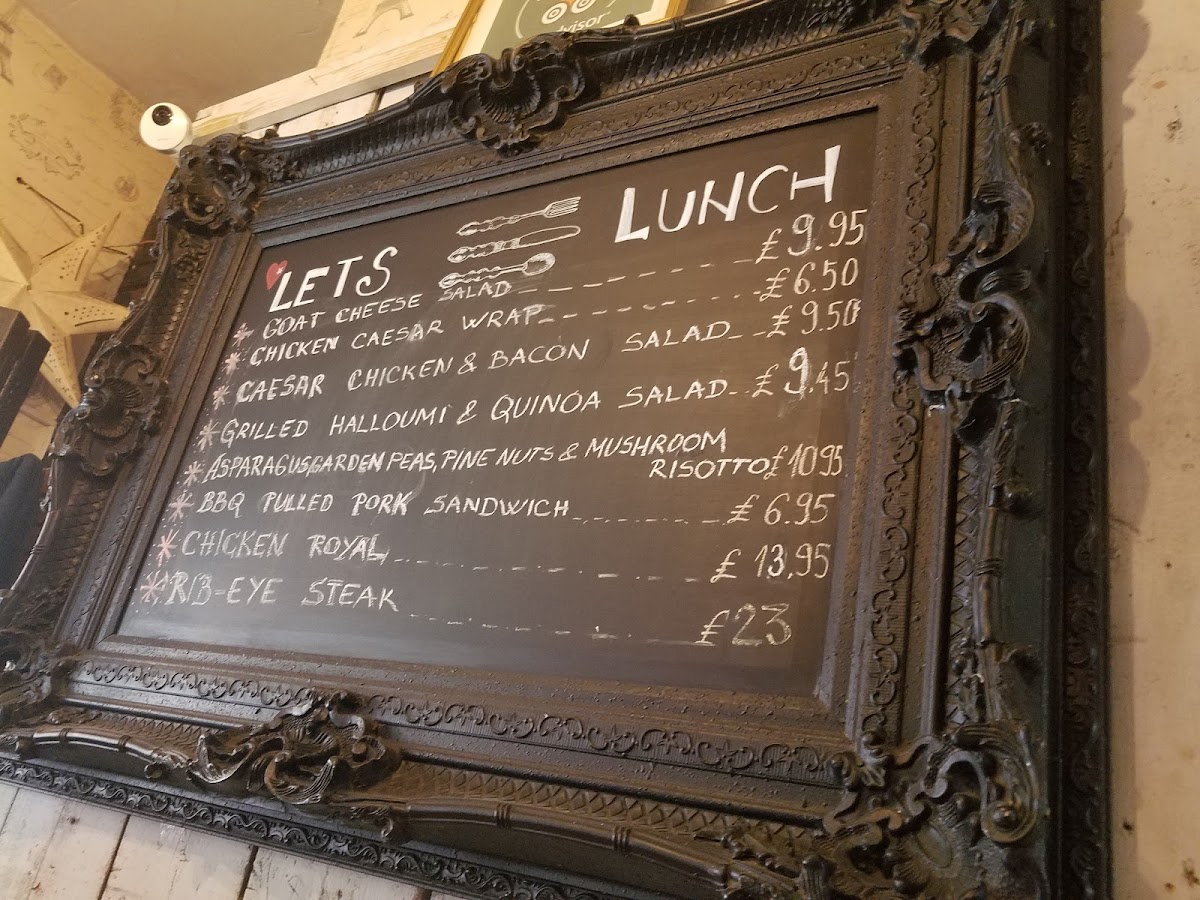 visor
LETS LUNCH
GOAT CHEESE SALAD £9.95
CHICKEN CAESAR WRAP £6.50
CAESAR CHICKEN & BACON SALAD £9.50
GRILLED HALLOUMI & QUINOA SALAD £9.45
ASPARAGUS GARDEN PEAS, PINE NUTS & MUSHROOM
RISOTTO £10.95
BBQ PULLED PORK SANDWICH £6.95
CHICKEN ROYAL £13.95
RIB-EYE STEAK £23